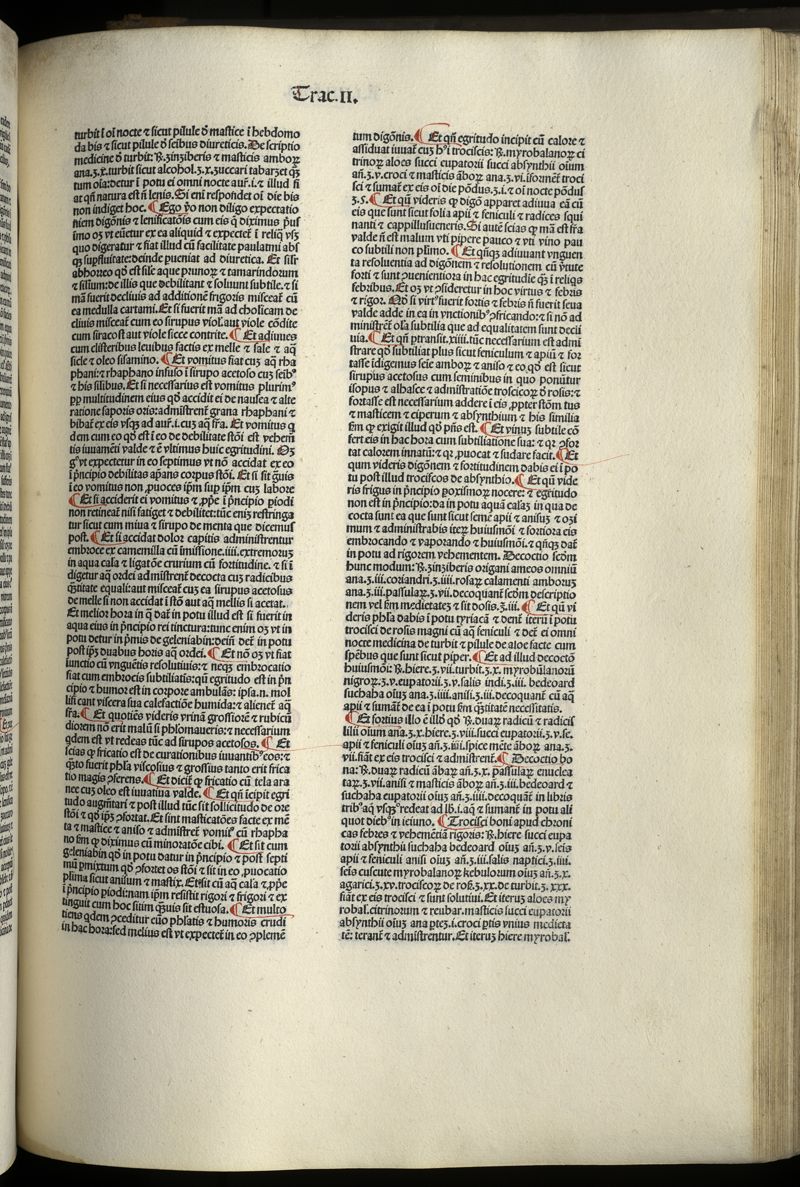 Trac.II.
turbit ĩ oĩ nocte ⁊ sicut pilule ð mastice ĩ hebdomo
da bis ⁊ sicut pilule ð seibus diureticis. Descriptio
medicine ð turbit: ℞. zinziberis ⁊ masticis amboꝝ
ana.ʒ.x.turbit sicut alcohol.ʒ.x.zuccari tabarzet q̃ʒ
tum oĩa: detur ĩ potu ei omni nocte aur̃.i. ⁊ illud fi
at qñ natura est ñ lenis. Si eni respondet oĩ die bis
non indiget hoc. ¶ Ego ṽo non diligo expectatio
niem digõnis ⁊ lenificatõis cum eis q̃ diximus p̃us
imo oʒ vt euẽtur ex ea aliquid ⁊ expectet̃ ĩ reliq̃ vsʒ
quo digeratur ⁊ fiat illud cũ facilitate paulatim abs
qʒ supfluitate: deinde pueniat ad diuretica. Et silr̃
abhorreo qð est sile aque prunoꝝ ⁊ tamarindorum
⁊ sillum: de illis que debilitant ⁊ soluunt subtile. ⁊ si
mã fuerit decliuis ad additionẽ frigoris misceat̃ cũ
ea medulla cartami. Et si fuerit mã ad cholicam de
cliuis misceat̃ cum eo sirupus viol. aut viole cõdite
cum siracost aut viole sicce contrite. ¶ Et adiuues
cum clisteribus leuibus factis ex melle ⁊ sale ⁊ aq̃
sicle ⁊ oleo sisamino. ¶ Et vomitus fiat cuʒ aq̃ rha
phani: ⁊ rhaphano infuso ĩ sirupo acetoso cuʒ seib⁹
⁊ his silibus. Et si necessarius est vomitus plurim⁹
ꝓp multitudinem eius qð accidit ei de nausea ⁊ alte
ratione saporis oris: admĩstrent̃ grana rhaphani ⁊
bibat̃ ex eis vsqʒ ad aur̃.i. cuʒ aq̃ fr̃a. Et vomitus q̃
dem cum eo qð est ĩ eo de debilitate stõi est vehem̃
tis iuuamẽti valde ⁊ ẽ vltimus huic egritudini. Oʒ
g⁰ vt expectetur in eo septimus vt nõ accidat ex eo
ĩ p̃ncipio debilitas ap̃ans corpus stõi. Et si sit g̃uis
ĩ eo vomitus non ꝓuoces ip̃m sup ip̃m cuʒ labore
¶ Et si acciderit ei vomitus ⁊ ꝓp̃e ĩ p̃ncipio p̃iodi
non retineat̃ nisi fatiget ⁊ debilitet: tũc enĩʒ restringa
tur sicut cum miua ⁊ sirupo de menta que dicemus
post. ¶ Et si accidat dolor capitis admĩstrentur
embroce ex camemilla cũ ĩmissione.iiii.extremoruʒ
in aqua cal̃a ⁊ ligatõe crurium cũ fortitudine. ⁊ si ĩ
digetur aq̃ ordei admĩstrent̃ decocta cuʒ radicibus
q̃titate equali: aut misceat̃ cuʒ ea sirupus acetosus
de melle si non accidat ĩ stõ aut aq̃ mellis si acetat.
Et melior hora in q̃ dat̃ in potu illud est si fuerit in
aqua eius in p̃ncipio rei tinctura: tunc enim oʒ vt in
potu detur in p̃mis de geleniabin: deiñ det̃ in potu
post ip̃s duabus horis aq̃ ordei. ¶ Et nõ oʒ vt fiat
iunctio cũ vnguẽtis resolutiuis: ⁊ neqʒ embrocatio
fiat cum embrocis subtiliatis: qñ egritudo est in p̃n
cipio ⁊ humor est in corpore ambulãs: ipsa.n. mol
lificant viscera sua calefactiõe humida: ⁊ alienet̃ aq̃
fr̃a. ¶ Et quotiẽs videris vrinã grossiorẽ ⁊ rubicũ
diorem nõ erit malũ si phlomaueris: ⁊ necessarium
q̃dem est vt redeas tũc ad sirupos acetosos. ¶ Et
scias q̃ fricatio est de curationibus iuuantib⁹ eos: ⁊
q̃sto fuerit phl̃a viscosius ⁊ grossius tanto erit frica
tio magis ꝯferens. ¶ Et dicit̃ q̃ fricatio cũ tela ara
nee cuʒ oleo est iuuatiua valde. ¶ Et qñ ĩcipit egri
tudo augm̃tari ⁊ post illud tũc sit sollicitudo de ore
stõi ⁊ qð ip̃ʒ ꝯfortat. Et sint masticatões facte ex mẽ
ta ⁊ mastice ⁊ aniso ⁊ admĩstret̃ vomit⁹ cũ rhapha
no fm̃ q̃ diximus cũ minoratõe cibi. ¶ Et sit cum
geleniabin qð in potu datur in p̃ncipio ⁊ post septi
mũ p̃mixtum qð ꝯfortet os stõi ⁊ sit in eo ꝓuocatio
plima sicut anisum ⁊ mastix. Et sit cũ aq̃ cal̃a ⁊ ꝓp̃e
ĩ p̃ncipio p̃iodi: nam ip̃m resistit rigori ⁊ frigori ⁊ ex
tinguit cum hoc sitim quis sit estuosa. ¶ Et multo
tiens q̃dem p̃ceditur cũo phlatis ⁊ humoris crudi
in hac hora: sed melius est vt expectet̃ in eo ꝯplemẽ
tum digõnis. ¶ Et qñ egritudo incipit cũ calore ⁊
assiduat iuuat̃ cuʒ h⁰i trociscis: ℞. myrobalanoꝝ ci
trinoꝝ aloes succi eupatorii succi absynthii oĩum
añ.ʒ.v.croci ⁊ masticis ãboꝝ ana.ʒ.vi. ĩformẽt̃ troci
sci ⁊ sumat̃ ex eis oĩ die põdus.ʒ.i. ⁊ oĩ nocte põdus
ʒ.s. ¶ Et qñ videris q̃ digõ apparet adiuua eã cũ
eis que sunt sicut folia apii ⁊ feniculi ⁊ radices squi
nanti ⁊ cappillusueneris. Si autẽ scias q̃ mã est fr̃a
valde ñ est malum vti pipere pauco ⁊ vti vino pau
co subtili non plimo. ¶ Et qñqʒ adiuuant vnguen
ta resoluentia ad digõnem ⁊ resolutionem cũ ṽtute
forti ⁊ sunt ꝓuenientiora in hac egritudĩe q̃ʒ ĩ reliqs
febribus. Et oʒ vt ꝯsideretur in hoc virtus ⁊ febris
⁊ rigor. Nõ si virt⁹ fuerit fortis ⁊ febris ñ fuerit seua
valde adde in ea in vnctionib⁹ ꝯfricando: ⁊ si nõ ad
ministret̃ ol̃a subtilia que ad equalitatem sunt decli
uia. ¶ Et qñ ptransit.xiiii.tũc necessarium est admi
strare qð subtiliat plus sicut feniculum ⁊ apiũ ⁊ for
tasse ĩdigemus seie amboꝝ ⁊ aniso ⁊ eo qð est sicut
sirupus acetosus cum seminibus in quo ponũtur
isopus ⁊ alhasce ⁊ admistratiõe trociscoꝝ ð rosis: ⁊
fortasse est necessarium addere ĩ eis ꝓpter stõm tus
⁊ masticem ⁊ ciperum ⁊ absynthium ⁊ his similia
fm̃ q̃ exigit illud qð p̃ñs est. ¶ Et vinuʒ subtile cõ
fert eis in hac hora cum subtiliatione sua: ⁊ qꝛ ꝯfor
tat calorem innatũ: ⁊ qꝛ ꝓuocat ⁊ sudare facit. ¶ Et
qum videris digõnem ⁊ fortitudinem dabis ei ĩ po
tu post illud trociscos de absynthio. ¶ Et qñ vide
ris frigus in p̃ncipio ꝑoxismoꝝ nocere: ⁊ egritudo
non est in p̃ncipio: da in potu aquã cal̃aʒ in qua de
cocta sunt ea que sunt sicut semẽ apii ⁊ anisuʒ ⁊ ozi
mum ⁊ administrabis iteꝝ huiusmõi ⁊ fortiora eis
embrocando ⁊ vaporando ⁊ huiusmõi. ⁊ qñqʒ dat̃
in potu ad rigorem vehementem. Decoctio scðm
hunc modum: ℞. zinziberis origani ameos omniũ
ana.ʒ.iii.coriandri.ʒ.iiii.rosaꝝ calamenti amboruʒ
ana.ʒ.iii.passulaꝝ.ʒ.vii.decoquant̃ scðm descriptio
nem vel fm̃ medietatẽ ⁊ sit dosis.ʒ.iii. ¶ Et qñ vi
deris phl̃a dabis ĩ potu tyriacã ⁊ dent̃ iterũ ĩ potu
trocisci de rosis magni cũ aq̃ feniculi ⁊ det̃ ei omni
nocte medicina de turbit ⁊ pilule de aloe facte cum
sp̃ebus que sunt sicut piper. ¶ Et ad illud decoctõ
huiusmõi: ℞. hiere.ʒ.vii.turbit.ʒ.x.myrobalanorũ
nigroꝝ.ʒ.v.eupatorii.ʒ.v.salis indi.ʒ.iii. bedeoard
suchaha oĩuʒ ana.ʒ.iiii.anisi.ʒ.iii.decoquant̃ cũ aq̃
apii ⁊ sumat̃ de ea ĩ potu fm̃ q̃titatẽ necessitatis.
¶ Et fortius illo ẽ illð qð ℞. duaꝝ radicũ ⁊ radicis
lilii oĩum ana.ʒ.x.hiere.ʒ.viii.succi eupatorii.ʒ.v.se.
apii ⁊ feniculi oĩuʒ añ.ʒ.iiii.spice mẽte ãboꝝ ana.ʒ.
vii.fiãt ex eis trocisci ⁊ admĩstrent̃. ¶ Decoctio bo
na: ℞. duaꝝ radicũ ãbaꝝ añ.ʒ.x. passulaꝝ enuclea
taꝝ.ʒ.vii.anisi ⁊ masticis ãboꝝ añ.ʒ.iii.bedeoard ⁊
suchaha eupatorii oĩuʒ añ.ʒ.iiii.decoquãt̃ in libris
trib⁹ aq̃ vsqʒ⁹ redeat ad lb.i.aq̃ ⁊ sumant̃ in potu ali
quot dieb⁹ in ieiuno. ¶ Trocisci boni apud chroni
cas febres ⁊ vehemẽtiã rigoris: ℞. hiere succi eupa
torii absynthii suchaha bedeoard oĩuʒ añ.ʒ.v.seis
apii ⁊ feniculi anisi oĩuʒ añ.ʒ.iii.salis naptici.ʒ.iiii.
seis cuscute myrobalanoꝝ kebulorum oĩuʒ añ.ʒ.x.
agarici.ʒ.xv.trociscoꝝ de ros̃.ʒ.xx.de turbit.ʒ.xxx.
fiãt ex eis trocisci ⁊ sunt solutiui. Et iteruʒ aloes my
robal̃. citrinorum ⁊ reubar. masticis succi eupatorii
absynthii oĩuʒ ana ptes.i.croci p̃tis vnius medieta
tẽ: terant̃ ⁊ admĩstrentur. Et iteruʒ hiere myrobal̃.